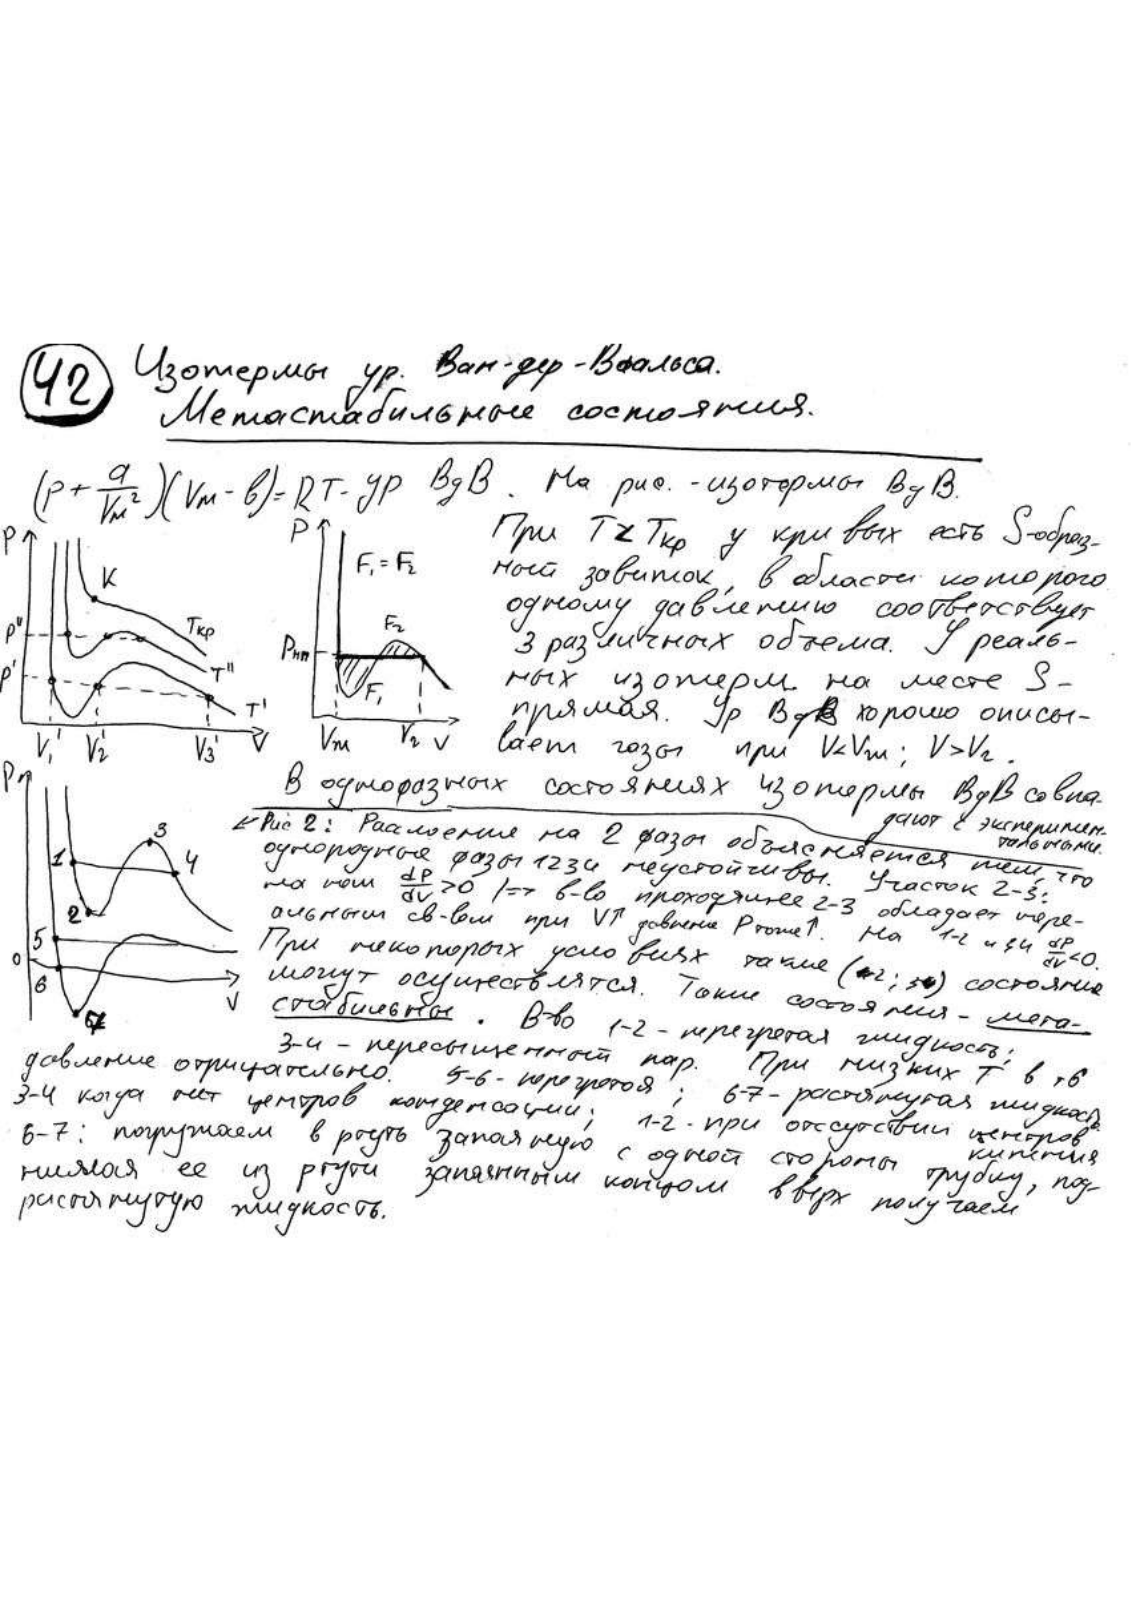 42
Изотермы ур. Ван-дер-Ваальса.
Метастабильные состояния.
(P + a/Vм²)(Vм - в) = RT - ур ВдВ. На рис. - изотермы ВдВ.
При T < Tкр у кривых есть S-образ-
ный завиток, в области которого
одному давлению соответствует
3 различных объема. У реаль-
ных изотерм на месте S -
прямая. Ур ВдВ хорошо описы-
вает газы при V<Vж; V>Vг.
P
K
P"
P'
Tкр
T"
T'
V₁' V₂' V₃' V
P
F₁ = F₂
F₂
Pнп
F₁
Vж Vг V
В однофазных состояниях изотермы ВдВ совпа-
дают с эксперимен-
тальными.
P
1
2
3
4
5
0
6
7
V
← Рис 2: Расслоение на 2 фазы объясняется тем, что
однородные фазы 1234 неустойчивы. Участок 2-3:
на нем dP/dV>0 |=> в-во проходящее 2-3 обладает нере-
альным св-вом при V↑ давление P тоже↑. На 1-2 и 34 dP/dV<0.
При некоторых условиях такие (12; 34) состояние
могут осуществлятся. Такие состояния - мета-
стабильны. В-во 1-2 - перегретая жидкость;
3-4 - пересыщенный пар. При низких T в 76
давление отрицательно. 5-6 - перегретая; 6-7 - растянутая жидкость.
3-4 когда нет центров конденсации; 1-2 - при отсутствии центров
кипения
6-7: погружаем в ртуть запаянную с одной стороны трубку, под-
нимая ее из ртути запаянным концом вверх получаем
растянутую жидкость.